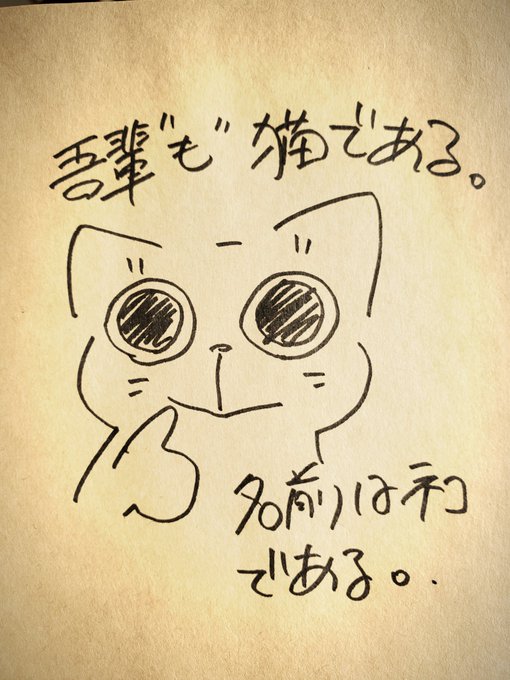 吾輩"も"猫である。
名前はネコ
である。